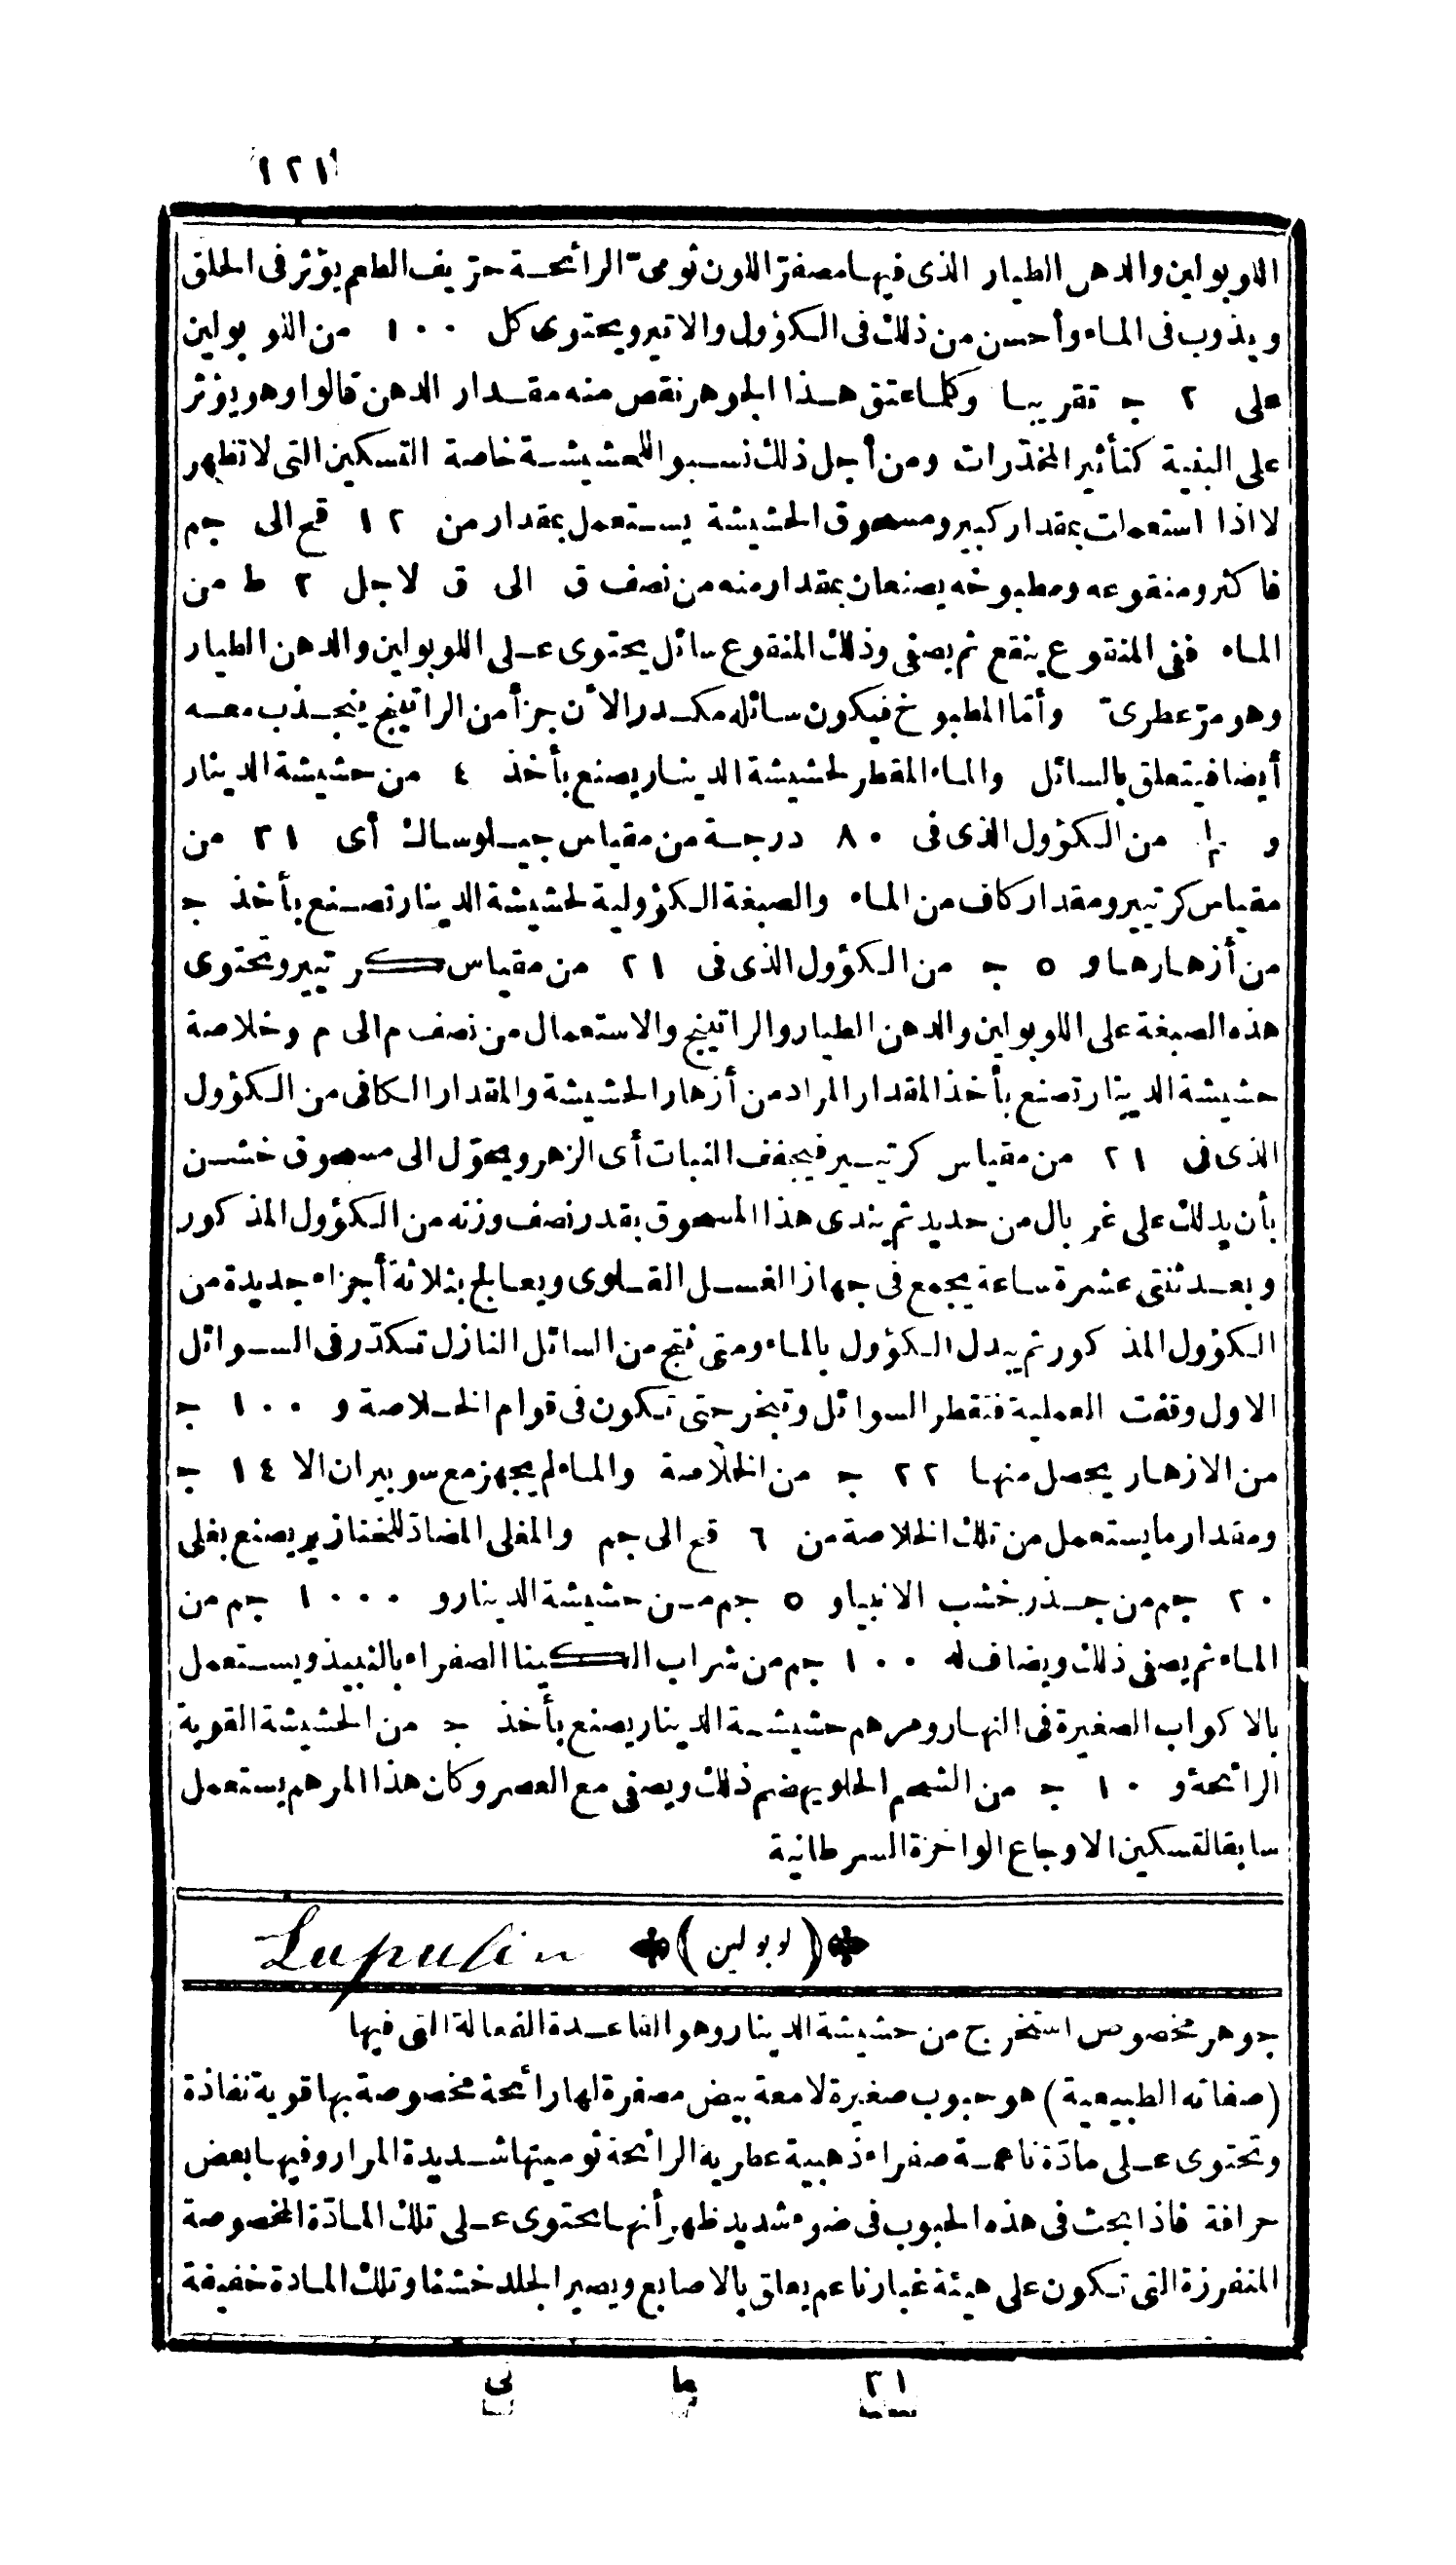 ١٢١
اللوبولين والدهن الطيار الذى فيها مصفرّ اللون ثومىّ الرائحة حرّيف الطعم يؤثر فى الحلق
ويذوب فى الماء وأحسن من ذلك فى الكؤول والاتير ويحتوى كل ١٠٠ من اللوبولين
على ٢ ج تقريبا وكلما عتق هذا الجوهر نقص منه مقدار الدهن قالوا وهو يؤثر
على البنية كتأثير المخدّرات ومن أجل ذلك نسبوا للحشيشة خاصة التسكين التى لا تظهر
لا اذا استعملت بمقدار كبير ومسحوق الحشيشة يستعمل بمقدار من ١٢ قمح الى جم
فاكثر ومنقوعه ومطبوخه يصنعان بمقدار منه من نصف ق الى ق لاجل ٢ ط من
الماء ففى المنقوع ينقع ثم يصفى وذلك المنقوع سائل يحتوى على اللوبولين والدهن الطيار
وهو مرّ عطرىّ وأمّا المطبوخ فيكون سائله مكدرا لأن جزأ من الراتينج ينجذب معه
أيضا فيتعلق بالسائل والماء المقطر لحشيشة الدينار يصنع بأخذ ٤ من حشيشة الدينار
و ١/٢ من الكؤول الذى فى ٨٠ درجة من مقياس جيلوساك أى ٣١ من
مقياس كرتيير ومقدار كاف من الماء والصبغة الكؤولية لحشيشة الدينار تصنع بأخذ ج
من أزهارها و ٥ ج من الكؤول الذى فى ٢١ من مقياس كرتيير وتحتوى
هذه الصبغة على اللوبولين والدهن الطيار والراتينج والاستعمال من نصف م الى م وخلاصة
حشيشة الدينار تصنع بأخذ المقدار المراد من أزهار الحشيشة والمقدار الكافى من الكؤول
الذى فى ٢١ من مقياس كرتيير فيجفف النبات أى الزهر ويحوّل الى مسحوق خشن
بأن يدلك على غربال من حديد ثم يندى هذا المسحوق بقدر نصف وزنه من الكؤول المذكور
وبعد ثنتى عشرة ساعة يجمع فى جهاز الغسل القلوى ويعالج بثلاثة أجزاء جديدة من
الكؤول المذكور ثم يبدل الكؤول بالماء ومتى نتج من السائل النازل تكدّر فى السوائل
الاول وقفت العملية فتقطر السوائل وتبخر حتى تكون فى قوام الخلاصة و ١٠٠ ج
من الازهار يحصل منها ٢٢ ج من الخلاصة والماء لم يجهز مع سوبيران الا ١٤ ج
ومقدار ما يستعمل من تلك الخلاصة من ٦ قمح الى جم والمغلى المضادّ للخنازير يصنع بغلى
٢٠ جم من جذر خشب الانبيا و ٥ جم من حشيشة الدينار و ١٠٠٠ جم من
الماء ثم يصفى ذلك ويضاف له ١٠٠ جم من شراب الكينا الصفراء بالنبيذ ويستعمل
بالاكواب الصغيرة فى النهار ومرهم حشيشة الدينار يصنع بأخذ ج من الحشيشة القوية
الرائحة و ١٠ ج من الشحم الحلو يهضم ذلك ويصفى مع العصر وكان هذا المرهم يستعمل
سابقا لتسكين الاوجاع الواخزة السرطانية
(لوبولين) Lupulin
جوهر مخصوص استخرج من حشيشة الدينار وهو القاعدة الفعالة التى فيها
(صفاته الطبيعية) هو حبوب صغيرة لامعة بيض مصفرة لها رائحة مخصوصة بها قوية نفاذة
وتحتوى على مادّة ناعمة صفراء ذهبية عطرية الرائحة ثوميتها شديدة المرار وفيها بعض
حرافة فاذا بحث فى هذه الحبوب فى ضوء شديد ظهر أنها تحتوى على تلك المادّة المخصوصة
المنفرزة التى تكون على هيئة غبار ناعم يعلق بالاصابع ويصير الجلد خشنا وتلك المادة خفيفة
٣١ ما نى